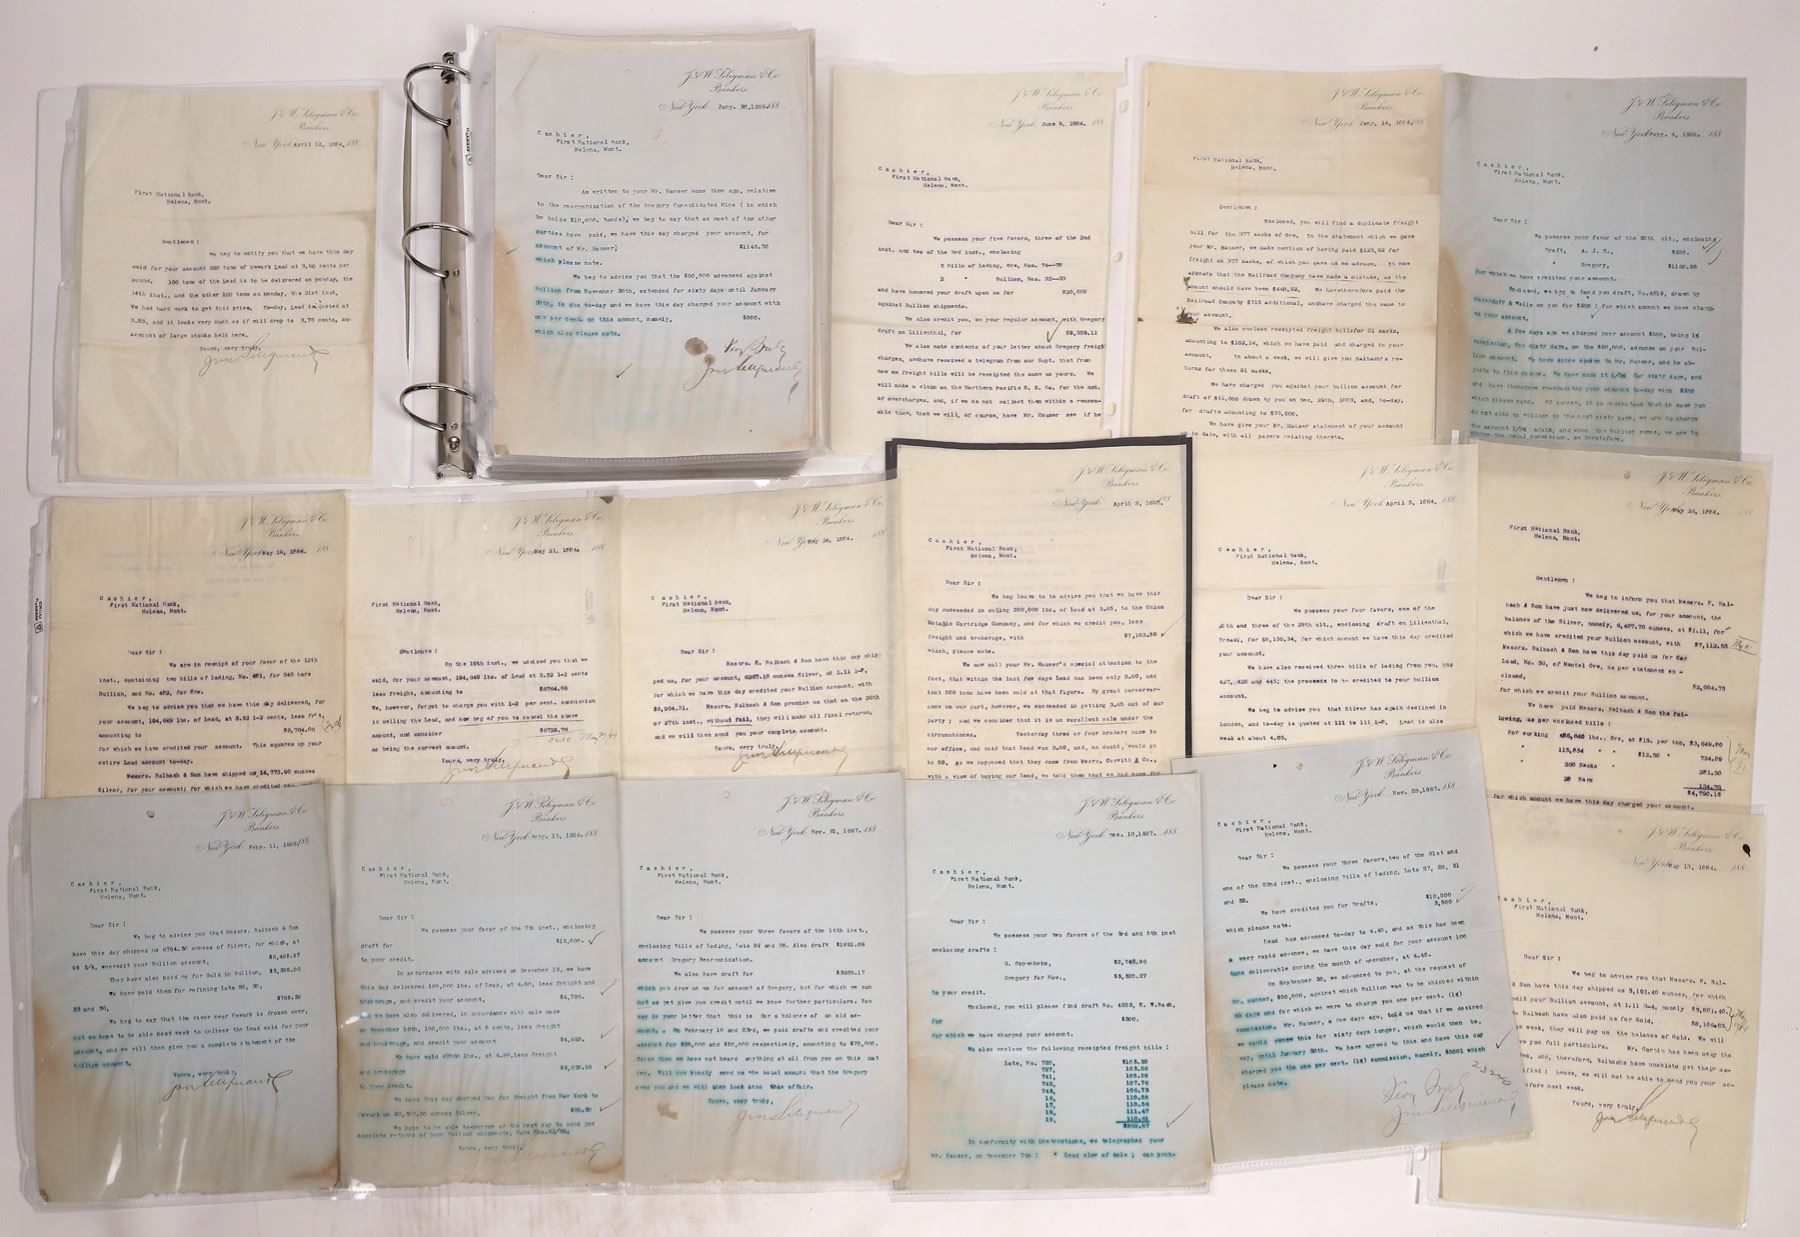 J. & W. Seligman & Co.
Bankers.
New York April 12, 1884. 188
First National Bank,
Helena, Mont.
Gentlemen :
We beg to notify you that we have this day
sold for your account 200 tons of Newark Lead at 3.80 cents per
pound, 100 tons of the Lead is to be delivered on Monday, the
14th inst., and the other 100 tons on Monday, the 21st inst.
We had hard work to get this price. To-day, Lead is quoted at
3.85, and it looks very much as if will drop to 3.75 cents, on
account of large stocks held here.
Yours, very truly,
J. & W. Seligman & Co.
Bankers.
New York Jany. 30, 1888. 188
Cashier,
First National Bank,
Helena, Mont.
Dear Sir :
As written to your Mr. Hauser some time ago, relative
to the reorganization of the Gregory Consolidated Mine ( in which
he holds $10,000. Bonds), we beg to say that as most of the other
parties have paid, we have this day charged your account, for
account of Mr. Hauser, $1145.70
which please note.
We beg to advise you that the $50,000 advanced against
Bullion from November 30th, extended for sixty days until January
30th, is due to-day and we have this day charged your account with
one per cent. on this amount, namely, $500.
which also please note.
J. & W. Seligman & Co.
Bankers.
New York June 9, 1884. 188
Cashier,
First National Bank,
Helena, Mont.
Dear Sir :
We possess your five favors, three of the 2nd
inst, and two of the 3rd inst, enclosing
3 Bills of Lading, Ore,
2 " Bullion,
and have honored your draft upon us for $20,000
against Bullion shipments.
We also credit you, on your regular account, with Gregory
draft on Lilienthal, for $9,359.11
We also note contents of your letter about Gregory freight
charges, and have received a telegram from our Supt. that from
now on freight bills will be receipted the same as yours. We
will make a claim on the Northern Pacific R. R. Co. for the amt.
of overcharges, and, if we do not collect them within a reason-
able time, then we will, of course, have Mr. Hauser see if he
J. & W. Seligman & Co.
Bankers.
New York Jany. 14, 1884. 188
First National Bank,
Helena, Mont.
Gentlemen :
Enclosed, you will find a duplicate freight
bill for the 377 sacks of Ore. In the statement which we gave
your Mr. Hauser, we make mention of having paid $125.92 for
freight on 377 sacks, of which you gave us no advice. It now
appears that the Railroad Company have made a mistake, as the
amount should have been $440.92. We have therefore paid the
Railroad Company $315 additional, and have charged the same to
your account.
We also enclose receipted freight bills for 91 sacks,
amounting to $102.24, which we have paid and charged to your
account. In about a week, we will give you Balbach's re-
turns for these 91 sacks.
We have charged you against your bullion account for
draft of $41,000 drawn by you on Dec. 29th, 1883, and, to-day,
for drafts amounting to $35,000.
We have give your Mr. Hauser statement of your account
up to date, with all papers relating thereto.
J. & W. Seligman & Co.
Bankers.
New York 188
Cashier,
First National Bank,
Helena, Mont.
Dear Sir :
We possess your favor of the 30th ult., enclosing
Draft, A. J. S., $225.
" Gregory,
for which we have credited your account.
Enclosed, we beg to hand you draft, No. 4519, drawn by
for which amount we have charg-
ed your account.
A few days ago we charged your account $500, being 1%
commission, for sixty days, on the $50,000, advance on your Bul-
lion account. We have since spoken to Mr. Hauser, and he ob-
jects to this charge. We have made it 1/2% for sixty days, and
and have therefore re-credited your account to-day with $250
which please note. Of course, it is understood that in case you
do not ship us bullion in the next sixty days, we are to charge
the account 1/2% again, and when the bullion comes, we are to
charge the usual commission, as heretofore.
J. & W. Seligman & Co.
Bankers.
New York May 19, 1884. 188
Cashier,
First National Bank,
Helena, Mont.
Dear Sir :
We are in receipt of your favor of the 12th
inst., containing two bills of lading, No. 481, for 340 bars
Bullion, and No. 482, for Ore.
We beg to advise you that we have this day delivered, for
your account, 194,649 lbs. of Lead, at 3.52 1-2 cents, less fr't,
amounting to $6,764.06
for which we have credited your account. This squares up your
entire Lead account to-day.
Messrs. Balbach & Son have shipped us 14,773.90 ounces
Silver, for your account; for which we have credited you
J. & W. Seligman & Co.
Bankers.
New York May 21, 1884. 188
First National Bank,
Helena, Mont.
Gentlemen :
On the 19th inst., we advised you that we
sold, for your account, 194,649 lbs. of Lead at 3.52 1-2 cents
less freight, amounting to $6764.06
We, however, forgot to charge you with 1-2 per cent. commission
in selling the Lead, and now beg of you to cancel the above
amount, and consider $6729.76
as being the correct amount.
Yours, very truly,
J. & W. Seligman & Co.
Bankers.
New York May 24, 1884. 188
Cashier,
First National Bank,
Helena, Mont.
Dear Sir :
Messrs. E. Balbach & Son have this day ship
ped us, for your account, 6297.10 ounces Silver, at 1.11 1-2,
for which we have this day credited your Bullion account, with
$6,964.21. Messrs. Balbach & Son promise us that on the 26th
or 27th inst., without fail, they will make all final returns,
and we will then send you your complete account.
Yours, very truly,
J. & W. Seligman & Co.
Bankers.
New York April 3, 188
Cashier,
First National Bank,
Helena, Mont.
Dear Sir :
We beg leave to to advise you that we have this
day succeeded in selling 200,000 lbs. of Lead at 3.65, to the Union
Metalic Cartridge Company, and for which we credit you, less
freight and brokerage, with $7,163.50
which, please note.
We now call your Mr. Hauser's special attention to the
fact, that within the last few days Lead has been only 3.60, and
that 500 tons have been sold at that figure. By great perserver-
ance on our part, however, we succeeded in getting 3.65 out of our
party ; and we consider that it is an excellent sale under the
circumstances. Yesterday three or four brokers came to
our office, and said that Lead was 3.60, and, no doubt, would go
to 50. As we supposed that they came from Messrs. Corwith & Co.,
with a view of buying our Lead, we told them that we had none for
J. & W. Seligman & Co.
Bankers.
New York April 5, 1884. 188
Cashier,
First National Bank,
Helena, Mont.
Dear Sir :
We possess your four favors, one of the
28th and three of the 29th ult., enclosing draft on Lilienthal,
Treas., for $8,150.34, for which amount we have this day credited
your account.
We have also received three bills of lading from you, Nos
427, 428 and 445; the proceeds to be credited to your bullion
account.
We beg to advise you that Silver has again declined in
London, and to-day is quoted at 111 to 111 1-2. Lead is also
weak at about 4.05.
J. & W. Seligman & Co.
Bankers.
New York May 26, 1884. 188
First National Bank,
Helena, Mont.
Gentlemen :
We beg to inform you that Messrs. E. Bal-
bach & Son have just now delivered us, for your account, the
balance of the Silver, namely, 6,407.70 ounces, at $1.11, for
which we have credited your Bullion account, with $7,112.55
Messrs. Balbach & Son have this day paid us for Car
Load, No. 36, of Mantel Ore, as per statement en -
closed, $2,004.75
for which we credit your Bullion account.
We have paid Messrs. Balbach & Son the fol-
lowing, as per enclosed bills :
For working 486,640 lbs., Ore, at $15. per ton, $3,649.80
" 115,834 " " $12.50 " 724.09
" 360 Sacks
" 28 Bars
$4,790.15
for which amount we have this day charged your account.
J. & W. Seligman & Co.
Bankers.
New York Feby. 11, 1888. 188
Cashier,
First National Bank,
Helena, Mont.
Dear Sir :
We beg to advise you that Messrs. Balbach & Son
have this day shipped us 6784.30 ounces of Silver, for which, at
95 3/4, we credit your Bullion account, $6,495.97
They have also paid us for Gold in Bullion,
We have paid them for refining Lots 29, 30,
33 and 36, $785.30
We beg to say that the river near Newark is frozen over,
but we hope to be able next week to deliver the Lead sold for your
account, and we will then give you a complete statement of the
bullion account.
Yours, very truly,
J. & W. Seligman & Co.
Bankers.
New York Feby. 15, 1888. 188
Cashier,
First National Bank,
Helena, Mont.
Dear Sir :
We possess your favor of the 7th inst., enclosing
draft for $15,000.
to your credit.
In accordance with sale advised on December 19, we have
this day delivered 100,000 lbs. of Lead, at 4.80, less freight and
brokerage, and credit your account,
we have also delivered, in accordance with sale made
on December 16th, 100,000 lbs., at 5 cents, less freight
and brokerage, and credit your account,
We have sold
and brokerage
to your credit.
We have this day charged you for freight from New York to
Newark on
We hope to be able to-morrow or the next day to send you
complete returns of your Bullion shipments,
Yours, very truly,
J. & W. Seligman & Co.
Bankers.
New York Nov. 21, 1887. 188
Cashier,
First National Bank,
Helena, Mont.
Dear Sir :
We possess your three favors of the 14th inst.,
enclosing Bills of Lading, Lots 27 and 28. Also draft $1921.08
account Gregory Reorganization.
We also have draft for $3625.17
which you drew on us for account of Gregory, but for which we can
not as yet give you credit until we know further particulars. You
say in your letter that this is for a balance of an old ac-
count. On February 18 and 23rd, we paid drafts and credited your
account for $25,000 and $50,000 respectively, amounting to $75,000.
Since then we have not heard anything at all from you on this mat
ter. Will you kindly send us the total amount that the Gregory
owed you and we will then look into this affair.
Yours, very truly,
J. & W. Seligman & Co.
Bankers.
New York Dec. 10, 1887. 188
Cashier,
First National Bank,
Helena, Mont.
Dear Sir :
We possess your two favors of the 3rd and 5th inst
enclosing drafts :
S. Oppenheim, $2,742.96
Gregory for Nov., $3,525.27
to your credit.
Enclosed, you will please find draft No. 4253, E. W. Bach,
for $500.
for which we have charged your account.
We also enclose the following receipted freight bills :
Lots, No. 725, $103.35
727, 103.26
741,
742, 107.76
743, 106.73
16, 110.55
17,
18, 111.47
19,
In conformity with instructions, we telegraphed your
Mr. Hauser, on December 7th : " Lead slow of sale ; can prob-
J. & W. Seligman & Co.
Bankers.
New York Nov. 28, 1887. 188
Cashier,
First National Bank,
Helena, Mont.
Dear Sir :
We possess your three favors, two of the 21st and
one of the 22nd inst., enclosing Bills of Lading, Lots 27, 28, 31
and 32.
We have credited you for Drafts, $10,500
3,500
which please note.
Lead has advanced to-day to 4.45, and as this has been
a very rapid advance, we have this day sold for your account 100
tons deliverable during the month of December, at 4.45.
On September 30, we advanced to you, at the request of
Mr. Hauser, $50,000, against which Bullion was to be shipped within
60 days and for which we were to charge you one per cent. (1%)
commission. Mr. Hauser, a few days ago, told us that if we desired
we could renew this for sixty days longer, which would then be,
say, until January 30th. We have agreed to this and have this day
charged you the one per cent. (1%) commission, namely, $500, which
please note.
J. & W. Seligman & Co.
Bankers.
New York May 13, 1884. 188
Cashier,
First National Bank,
Helena, Mont.
Dear Sir :
We beg to advise you that Messrs. E. Bal-
& Son have this day shipped us 5,191.40 ounces, for which
credit your Bullion account, at 1.11 3-4, namely $5,801.40.
Balbach have also paid us for Gold, $6,104.65
week, they will pay us the balance of Gold. We will
you full particulars. Mr. Corbin has been away the
and, therefore, Balbachs have unable to get their as-
: hence, we will not be able to send you your ac-
before next week.
Yours, very truly,